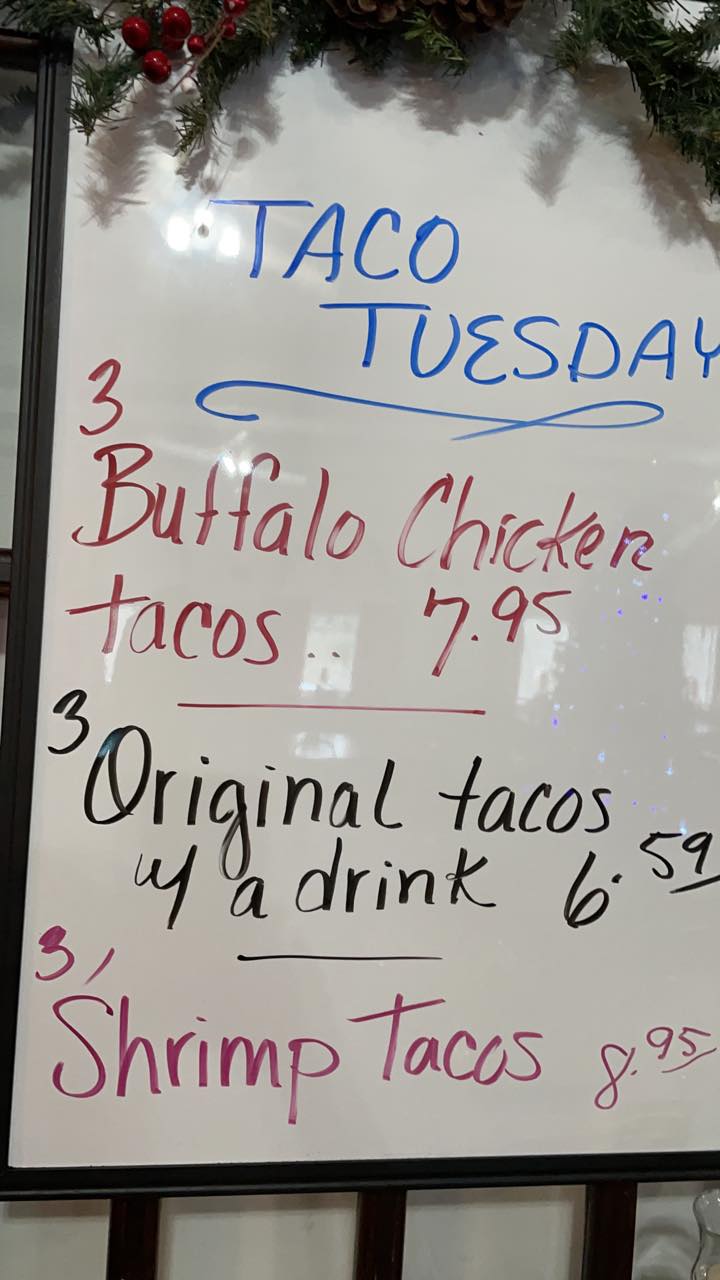 TACO
TUESDAY
3
Buffalo Chicken
tacos.. 7.95
3 Original tacos
w/ a drink 6.59
3
Shrimp Tacos 8.95